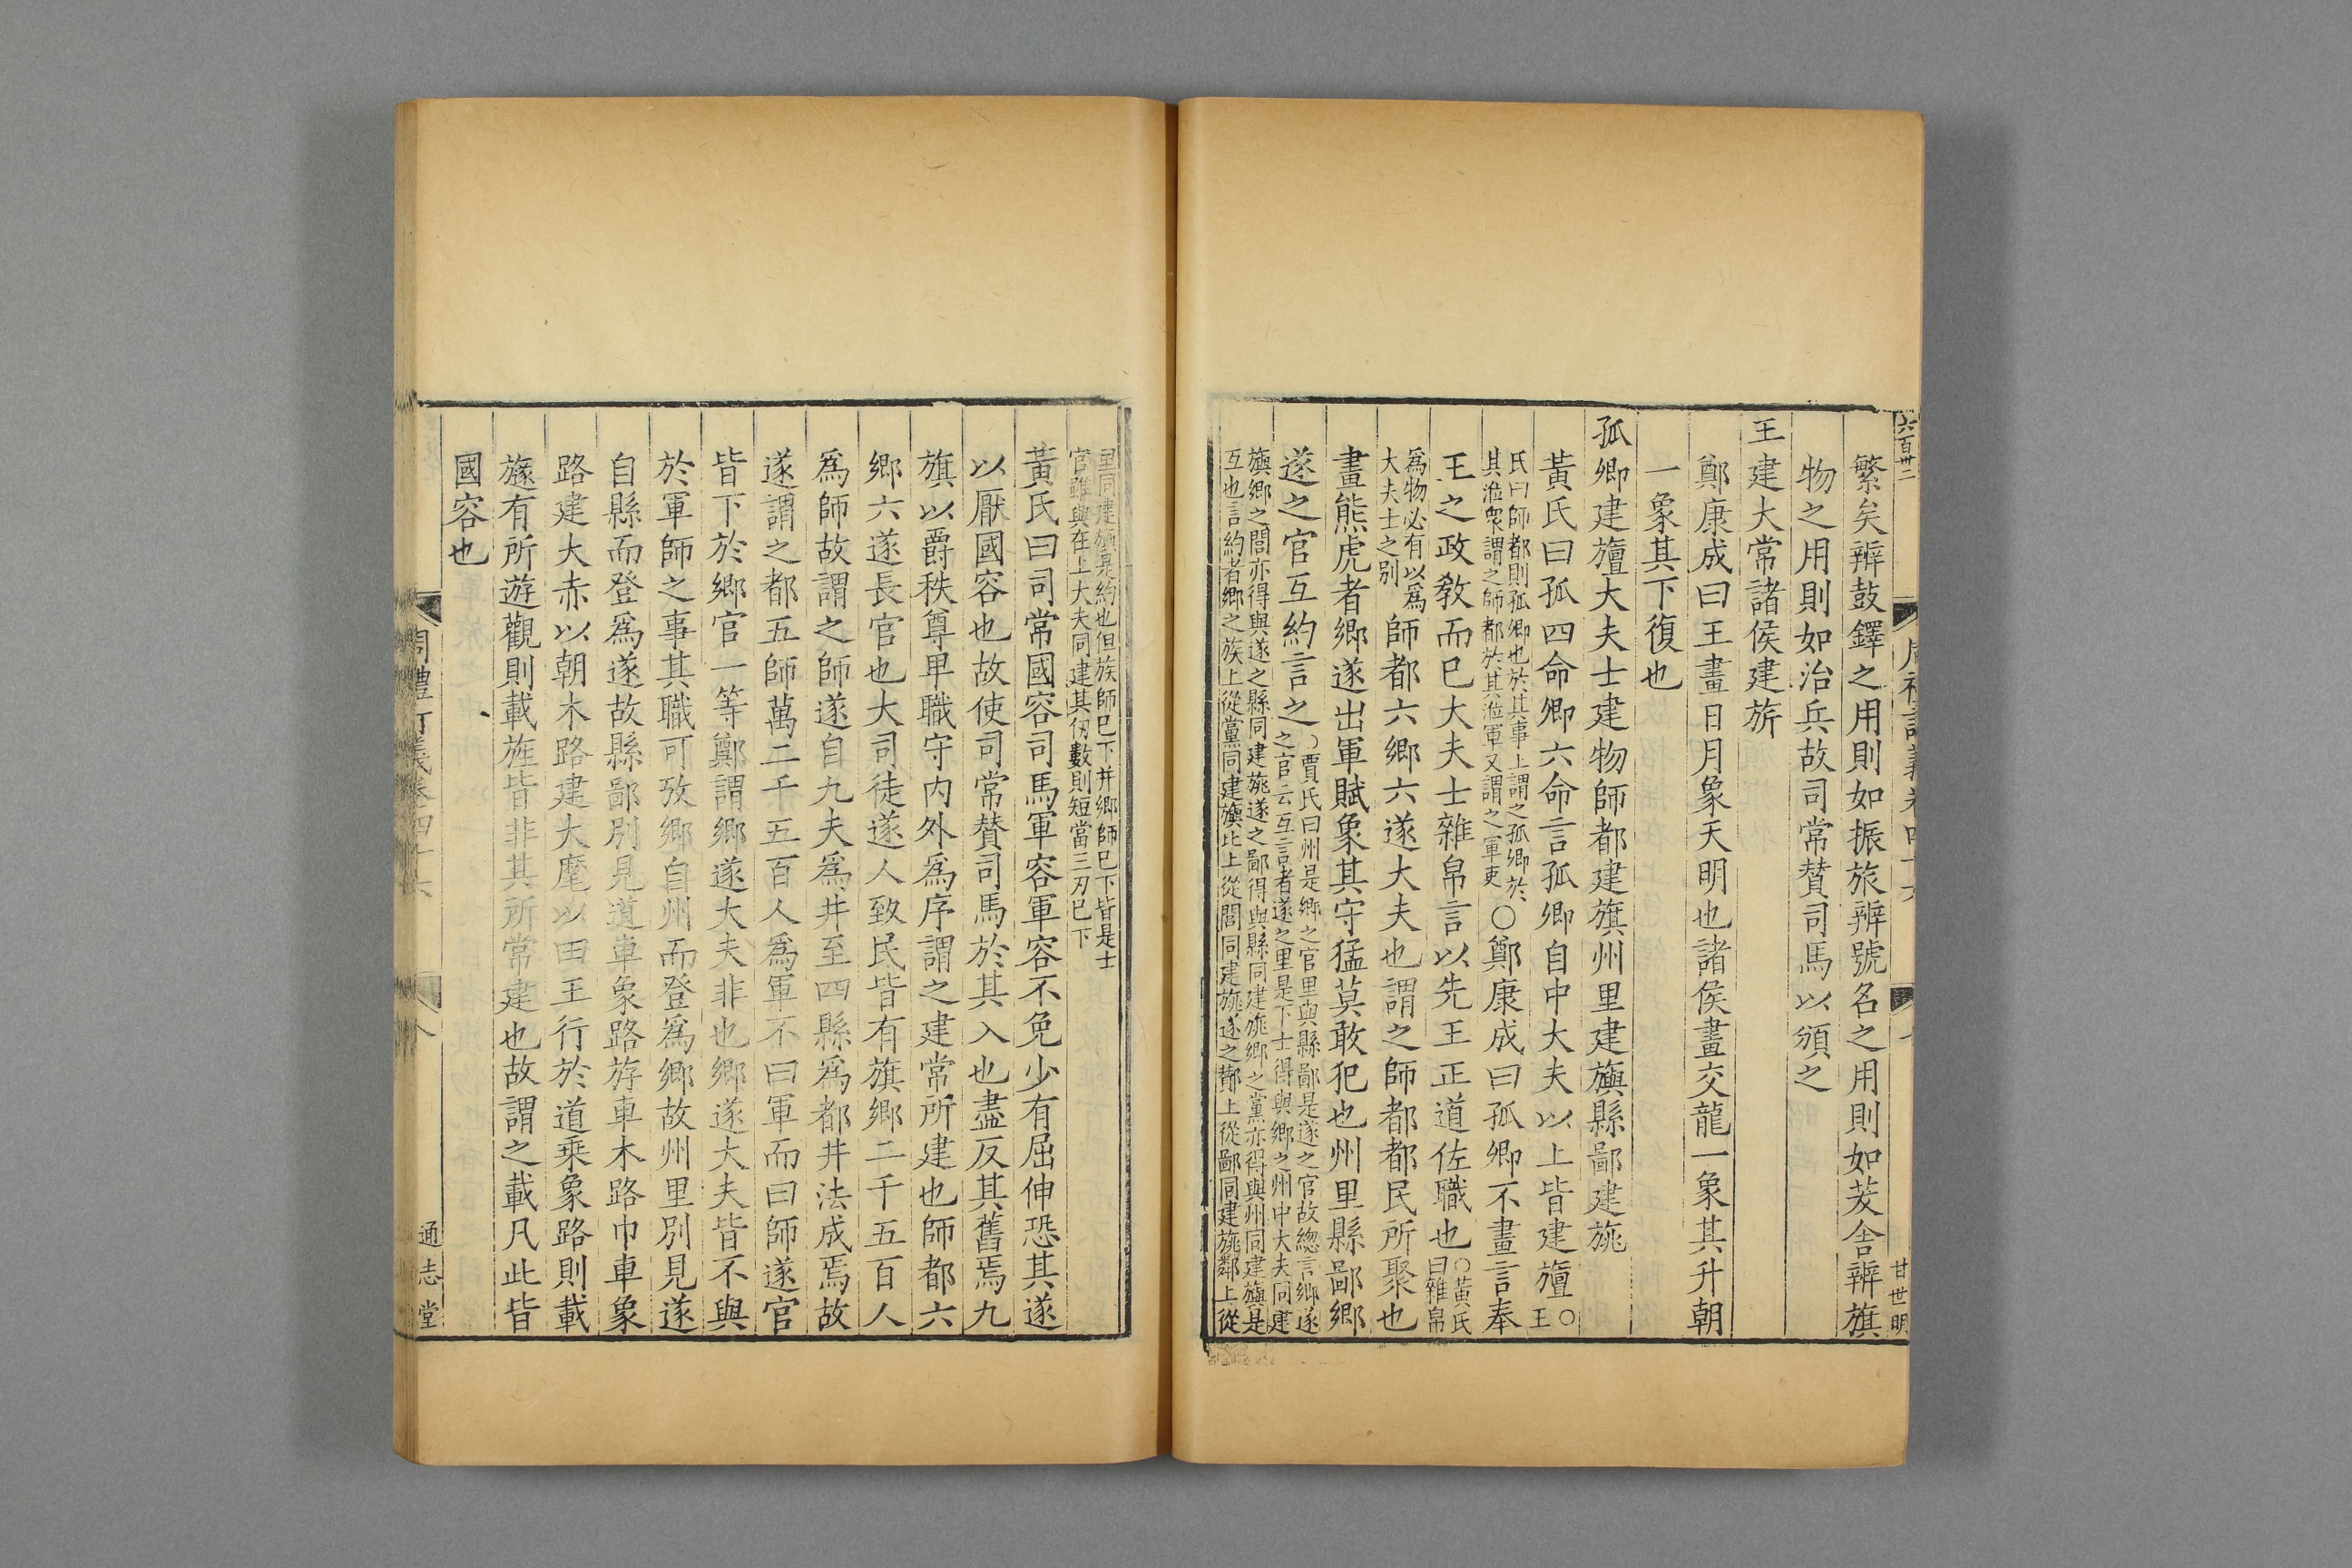 六百卅二
甘世明
繁矣辨鼓鐸之用則如振旅辨號名之用則如茇舍辨旗
物之用則如治兵故司常賛司馬以頒之
王建大常諸侯建旂
鄭康成曰王畫日月象天明也諸侯畫交龍一象其升朝
一象其下復也
孤卿建旜大夫士建物師都建旗州里建旟縣鄙建旐
黃氏曰孤四命卿六命言孤卿自中大夫以上皆建旜○王
氏曰師都則孤卿也於其事上謂之孤卿於
其涖衆謂之師都於其涖軍又謂之軍吏○鄭康成曰孤卿不畫言奉
王之政敎而已大夫士雜帛言以先王正道佐職也○黃氏曰雜帛
為物必有以為
大夫士之别師都六鄉六遂大夫也謂之師都都民所聚也
畫熊虎者鄉遂出軍賦象其守猛莫敢犯也州里縣鄙鄉
遂之官互約言之○賈氏曰州是鄉之官里與縣鄙是遂之官故總言鄉遂
之官云互言者遂之里是下士得與鄉之州中大夫同建
旟鄉之閭亦得與遂之縣同建旐遂之鄙得與縣同建旐鄉之黨亦得與州同建旟是
互也言約者鄉之族上從黨同建旟比上從閭同建旐遂之酇上從鄙同建旐鄰上從
里同建旐是約也但族師已下并鄉師已下皆是士
官雖與在上大夫同建其仞數則短當三刃已下
黃氏曰司常國容司馬軍容軍容不免少有屈伸恐其遂
以厭國容也故使司常賛司馬於其入也盡反其舊焉九
旗以爵秩尊卑職守内外為序謂之建常所建也師都六
鄉六遂長官也大司徒遂人致民皆有旗鄉二千五百人
為師故謂之師遂自九夫為井至四縣為都井法成焉故
遂謂之都五師萬二千五百人為軍不曰軍而曰師遂官
皆下於鄉官一等鄭謂鄉遂大夫非也鄉遂大夫皆不與
於軍師之事其職可攷鄉自州而登為鄉故州里別見遂
自縣而登為遂故縣鄙別見道車象路斿車木路巾車象
路建大赤以朝木路建大麾以田王行於道乘象路則載
旞有所遊觀則載旌皆非其所常建也故謂之載凡此皆
國容也
周禮訂義卷四十六
八
通志堂